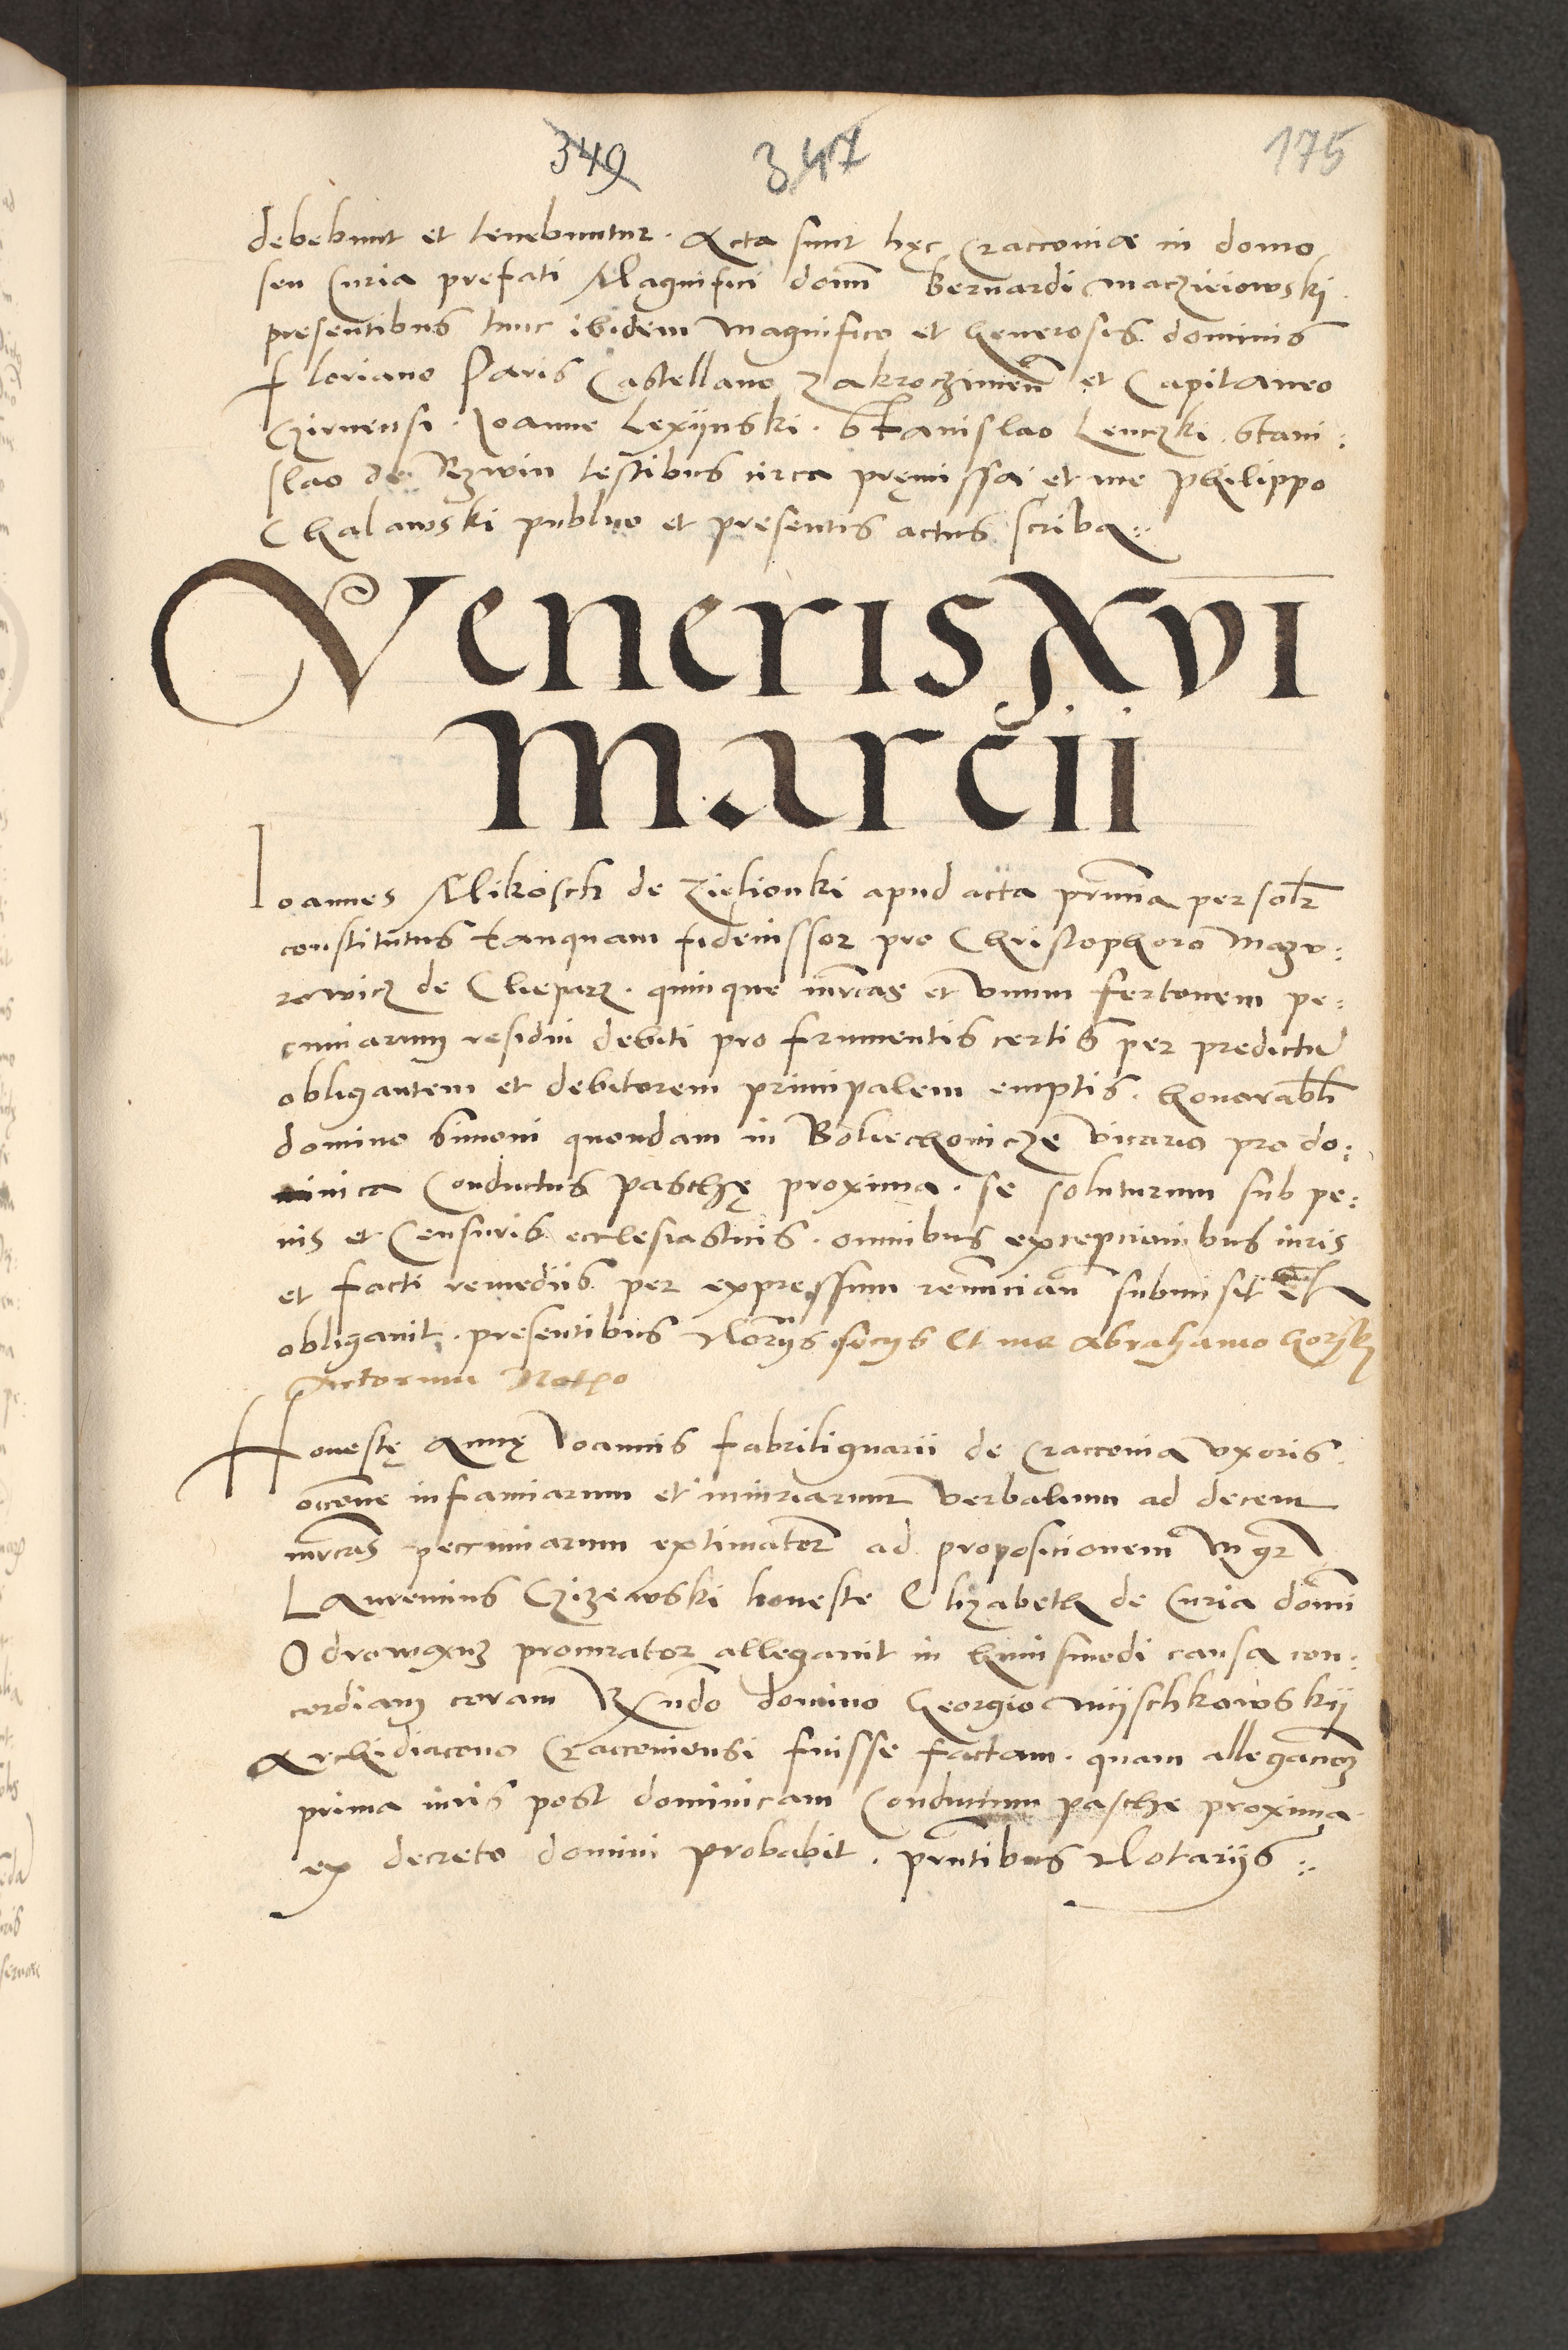 349 347 175
debebunt et tenebuntur. Acta sunt hęc Cracoviæ in domo
seu Curia prefati Magnifici domi Bernardi Maczieiowski.
presentibus tunc ibidem Magnifico et Generosis dominis
Floriano Paris Castellano Zakroczimen et Capitaneo
Czirnensi. Joanne Lexijnski. Stanislao Lenczki. Stani:
slao de Rzwin testibus circa pręmissa et me Philippo
Chalawski publico et presentis actus scriba
Veneris XVI
Marcii
Ioannes Mikosch de Zielionki apud acta prnia personlr
constitutus tanquam fideiussor pro Christophoro Mazu:
rowicz de Cleparz. quinque mrcas et unum fertonem pe:
cuniarum residui debiti pro frumentis certis per predictu
obligantem et debitorem principalem emptis. honorabli
domino Simoni quondam in Boliechonicze vicario pro do:
minica Conductus Paschę proxima. se soluturum sub pe:
nis et Censuris ecclesiasticis. omnibus excepcionibus iuris
et facti remediis per expressum renuncian submisit et
obligavit. presentibus Notrijs socijs Et me Abrahamo Gorski
Actorum Notrio
Honestę Annę Joannis fabrilignarii de Cracovia uxoris.
occone infamiarum et iniuriarum verbalium ad decem
mrcas peccuniarum extimator ad proposicionem Mgr
Laurencius Czizewski honeste Elizabeth de Curia domi
Odrowąz procurator allegavit in huiusmodi causa con:
cordiam coram Rndo domino Georgio Mijschkowskij
Archidiacono Cracoviensi fuisse factam. quam allegacionem
prima iuris post dominicam Conductum pasche proxima.
ex decreto domini probabit. prntibus Notarijs